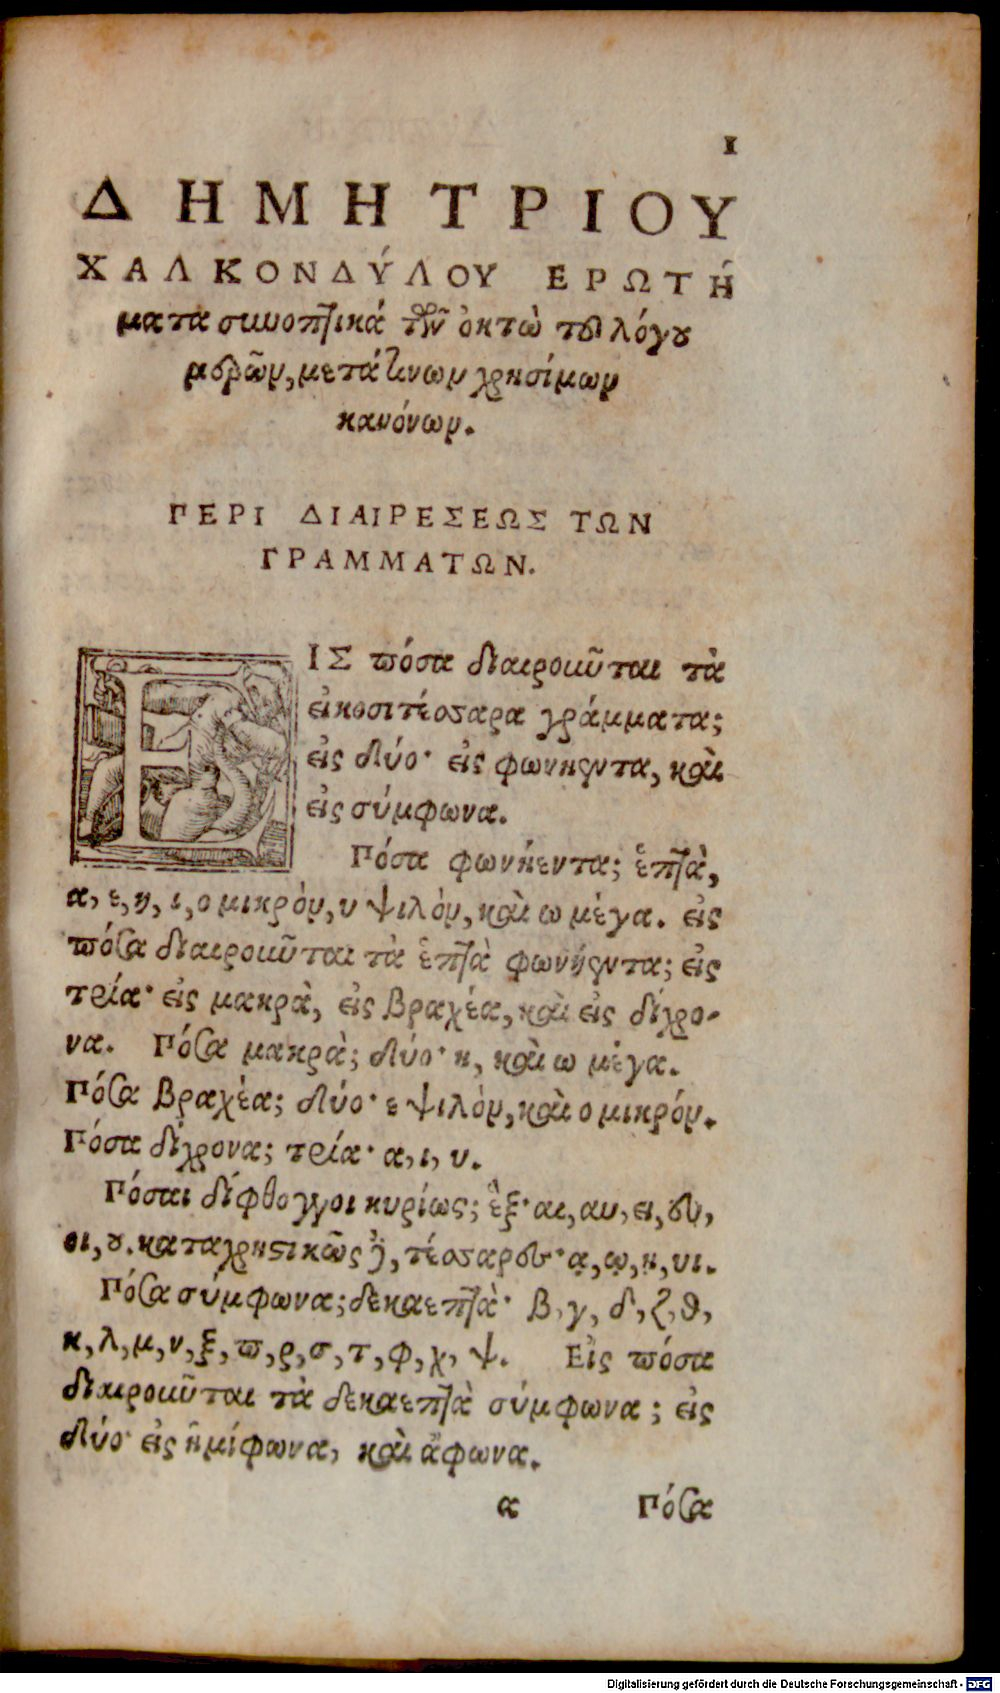 1
ΔΗΜΗΤΡΙΟΥ
ΧΑΛΚΟΝΔΎΛΟΥ ΕΡΩΤΉ
ματα συνοπτικὰ τῶν ὀκτὼ τοῦ λόγου
μερῶν, μετά τινων χρησίμων
κανόνων.
ΠΕΡΙ ΔΙΑΙΡΕΣΕΩΣ ΤΩΝ
ΓΡΑΜΜΑΤΩΝ.
ΕΙΣ πόσα διαιροῦνται τὰ
εἰκοσιτέσσαρα γράμματα;
εἰς δύο· εἰς φωνήεντα, καὶ
εἰς σύμφωνα.
Πόσα φωνήεντα; ἑπτὰ,
α, ε, η, ι, ο μικρόν, υ ψιλόν, καὶ ω μέγα. εἰς
πόσα διαιροῦνται τὰ ἑπτὰ φωνήεντα; εἰς
τρία· εἰς μακρὰ, εἰς βραχέα, καὶ εἰς δίχρο-
να. Πόσα μακρὰ; δύο· η, καὶ ω μέγα.
Πόσα βραχέα; δύο· ε ψιλὸν, καὶ ο μικρόν.
Πόσα δίχρονα; τρία· α, ι, υ.
Πόσαι δίφθογγοι κυρίως; ἓξ· αι, αυ, ει, ευ,
οι, ου. καταχρηστικῶς δὲ, τέσσαρες· ᾳ, ῳ, ῃ, υι.
Πόσα σύμφωνα; δεκαεπτὰ· β, γ, δ, ζ, θ,
κ, λ, μ, ν, ξ, π, ρ, σ, τ, φ, χ, ψ. Εἰς πόσα
διαιροῦνται τὰ δεκαεπτὰ σύμφωνα; εἰς
δύο· εἰς ἡμίφωνα, καὶ ἄφωνα.
α Πόσα
Digitalisierung gefördert durch die Deutsche Forschungsgemeinschaft - DFG